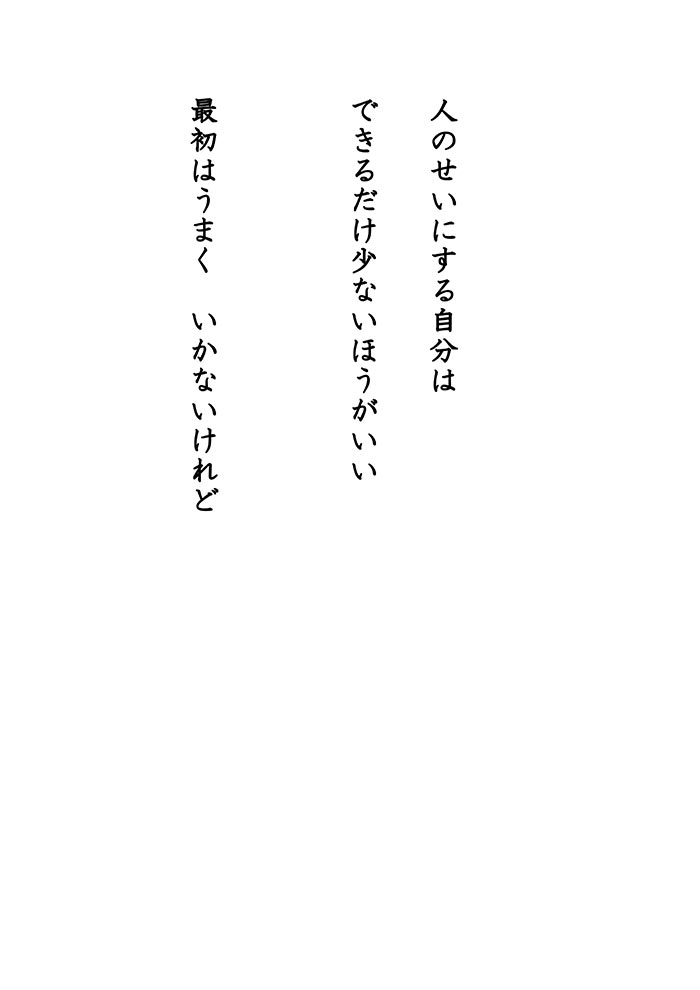 人のせいにする自分は
できるだけ少ないほうがいい
最初はうまく　いかないけれど